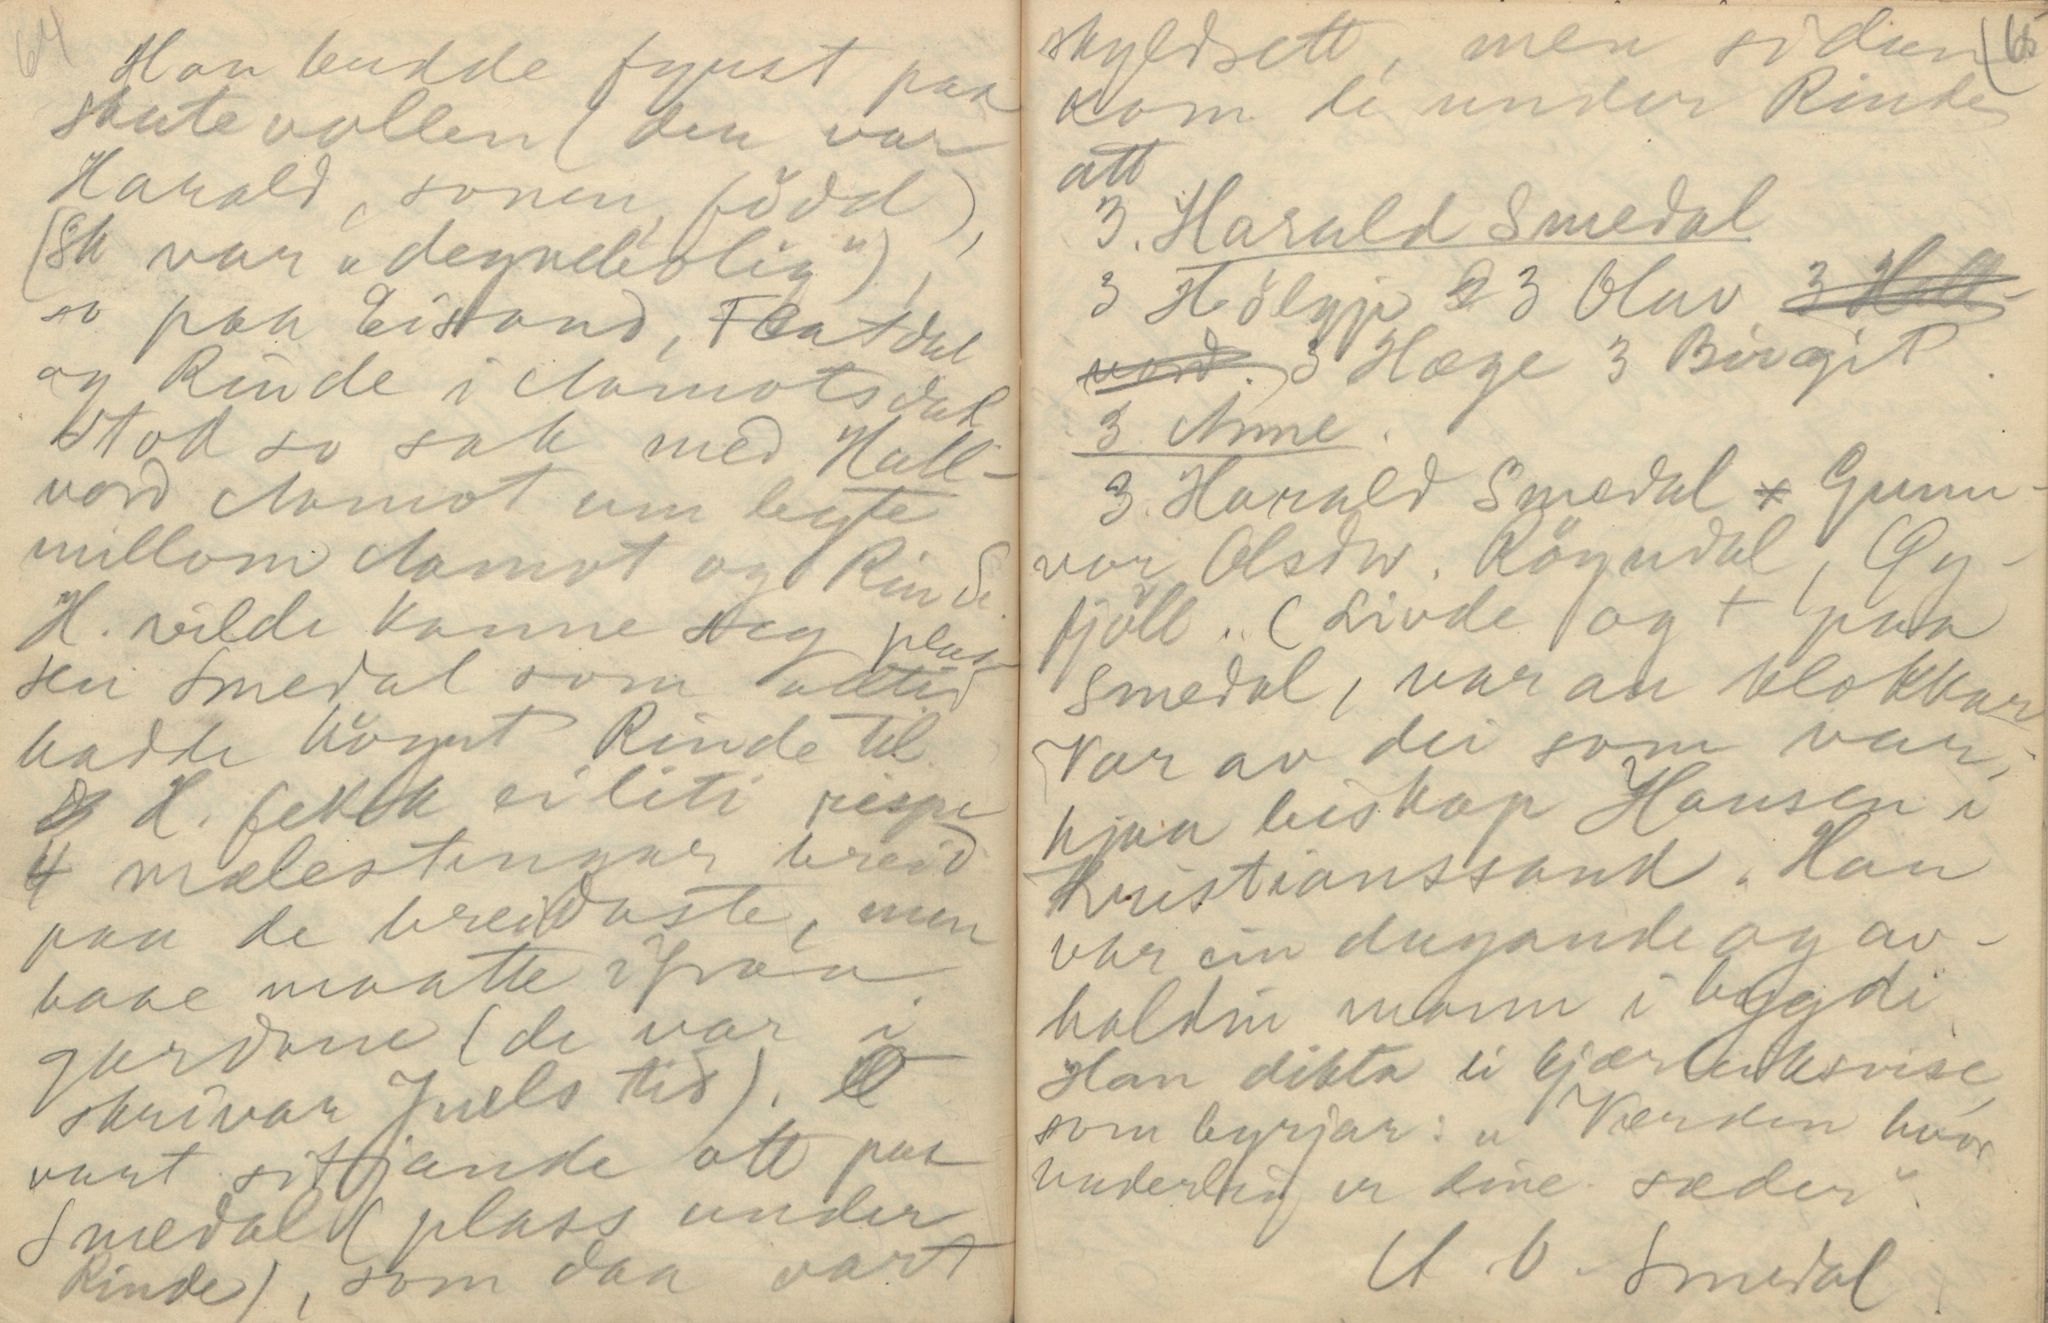 64
Han budde fyrst paa
Skutevollen (den var
Harald, sonen, född),
(Sk var „deyndebolig"),
so paa Eisand, Flatdal
og Rinde i Aamotsdal
Stod so sak med Hall-
vord Aamot um byte
millom Aamot og Rinde.
H. vilde kanne seg plas-
sen Smedal som alltid
hadde höyrt Rinde til.
H. fekk ei liti reipe
4 mælestengar breid
paa de breidaste, men
baae maatte ifraa
gardane (de var i
skrivar Juels tid).
vart sitjande att paa
Smedal (plass under
Rinde), som daa vart
65
skyldsett, men sidan
kom de under Rinde
att
3. Harald Smedal
3 Hölgje 3 Olav 3 Hall-
vord. 3 Hæge 3 Birgit.
3. Anne.
3. Harald Smedal × Gunn-
vor Olsdtr. Röyndal, Öy-
fjöll. (Livde og + paa
Smedal, var au klokkar
Var av dei som var
hjaa biskop Hansen i
Kristianssand. Han
var ein dugande og av-
haldin mann i bygdi.
Han dikta ei kjærleiksvise,
som byrjar: „Værden hvor
underleg er dine sæder".
A. O. Smedal.